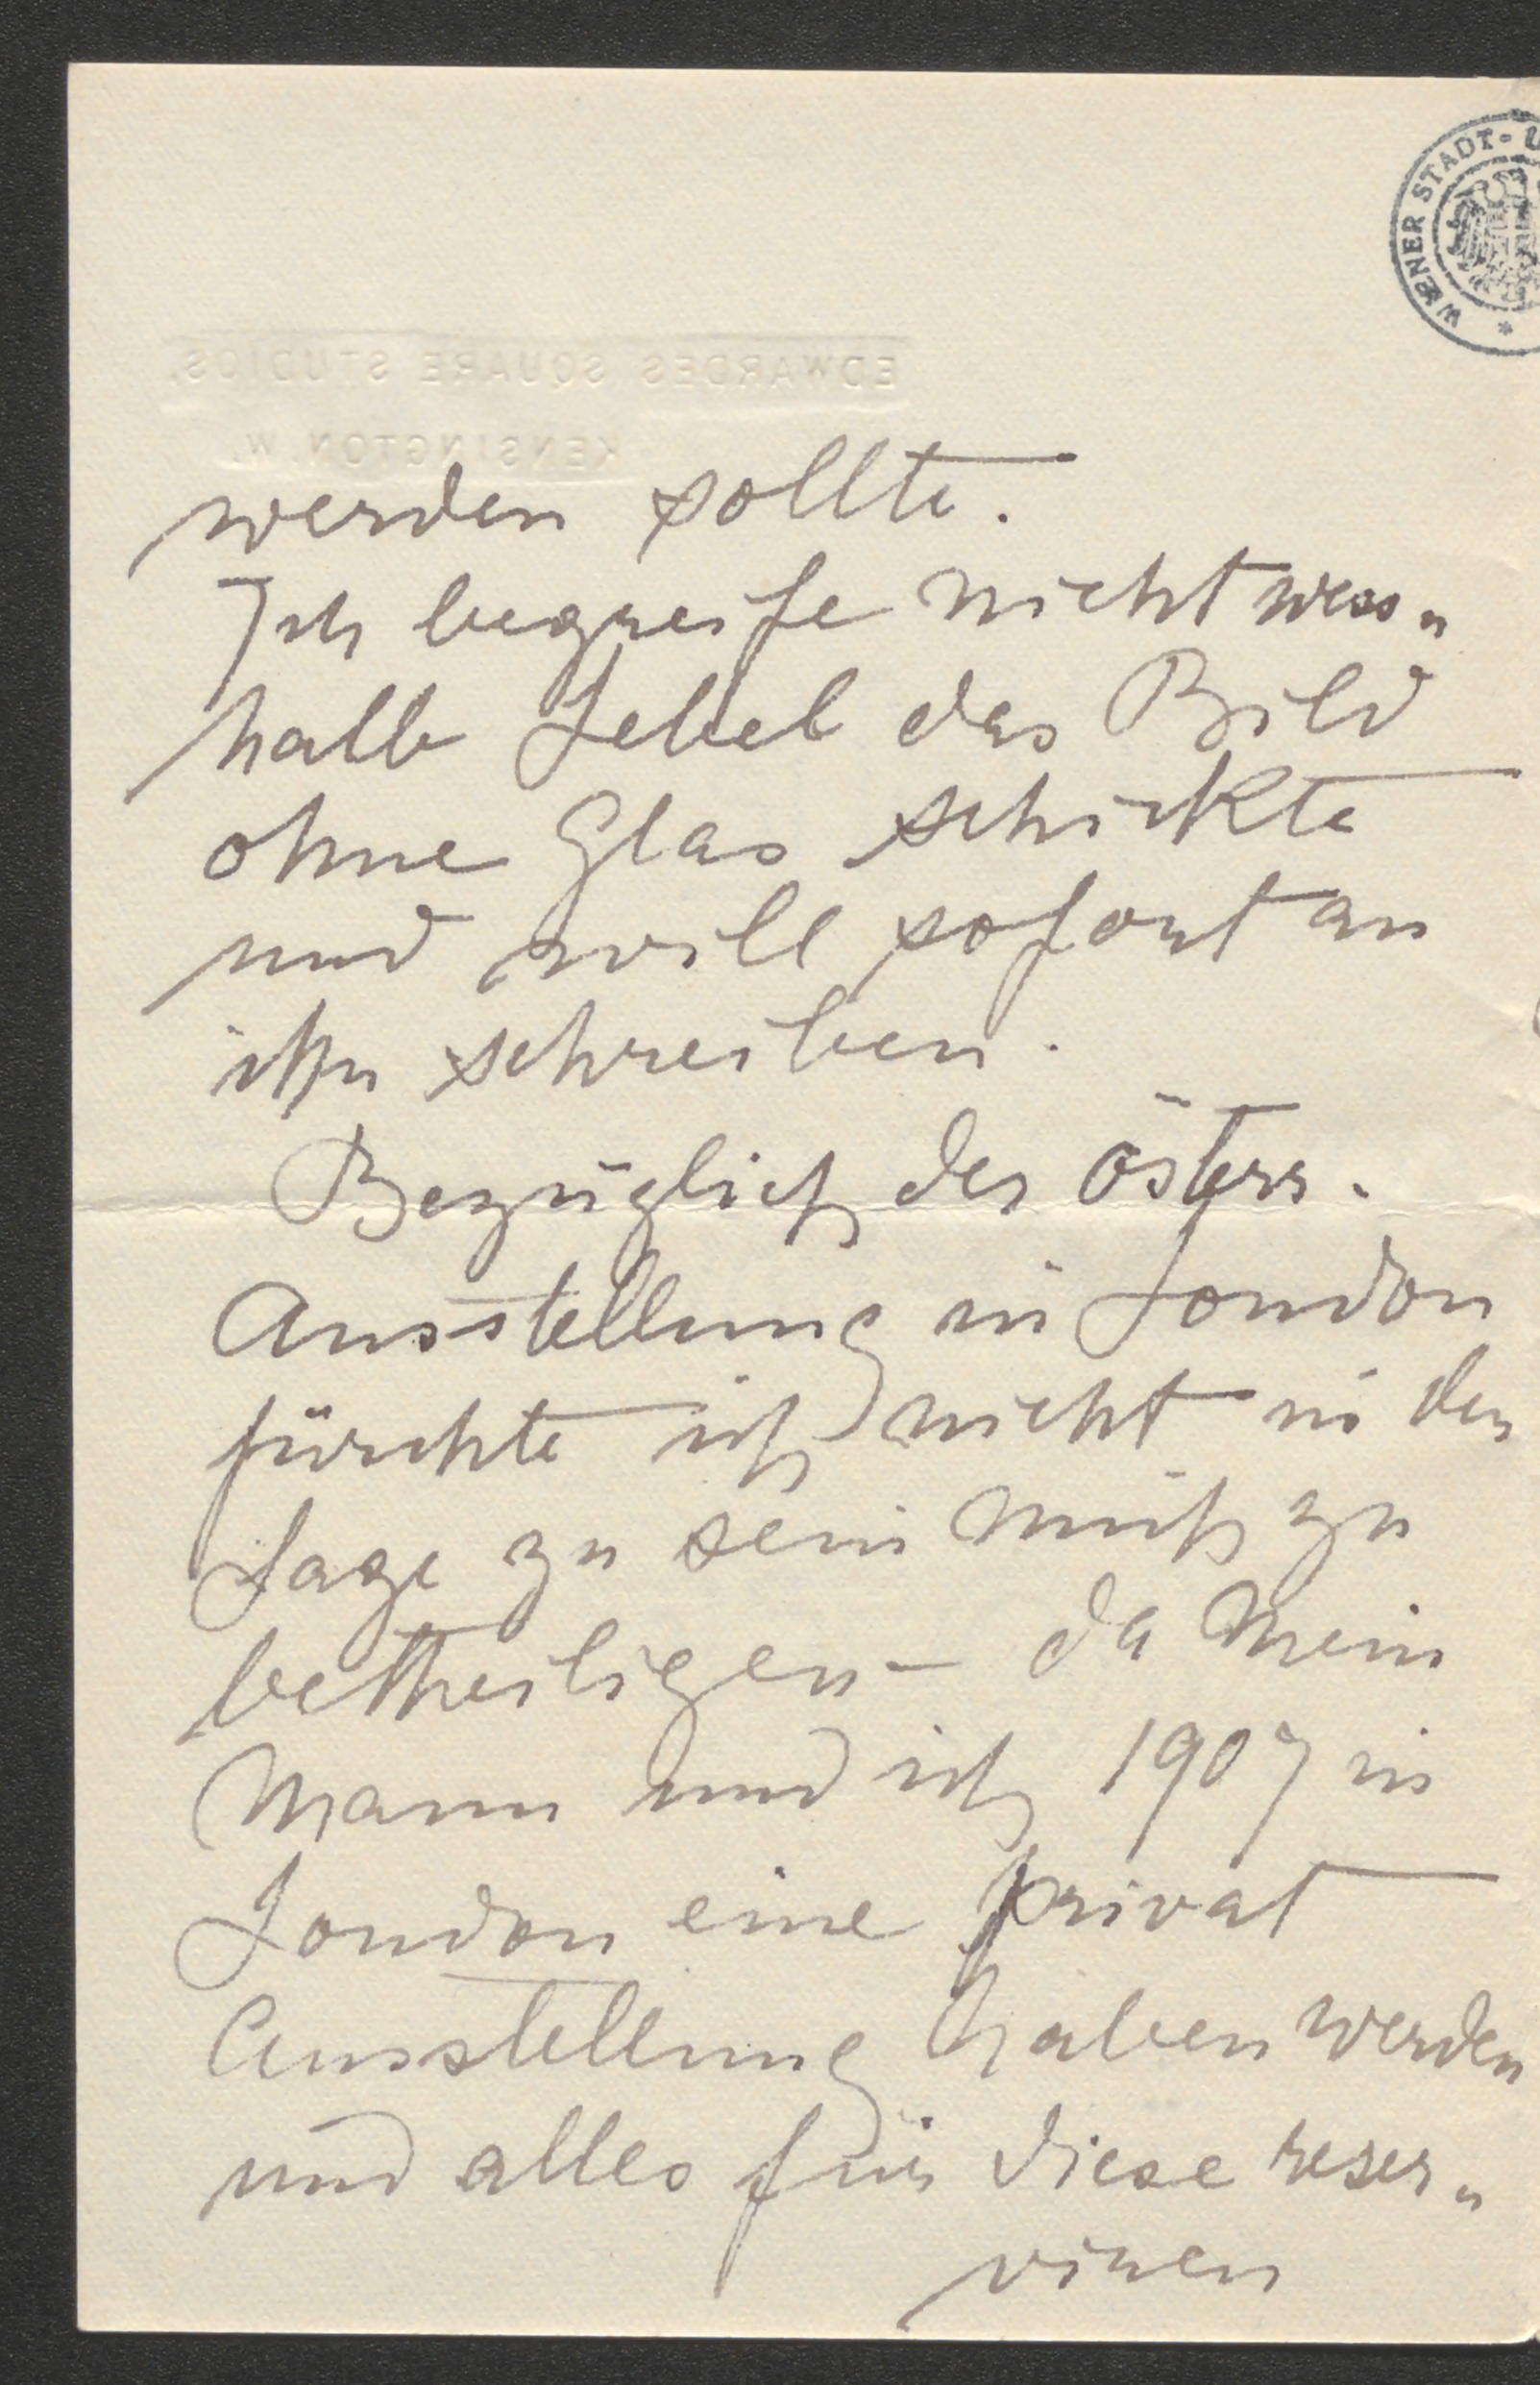 WIENER STADT- U
EDWARDES SQUARE STUDIOS,
KENSINGTON. W.
werden sollte.
Ich begreife nicht wess„
halb Lebel das Bild
ohne Glas schickte
und will sofort an
ihn schreiben.
Bezüglich der österr.
Ausstellung in London
fürchte ich nicht in der
Lage zu sein mich zu
betheiligen – da mein
Mann und ich 1907 in
London eine privat
Ausstellung haben werden
und alles für diese reser„
viren